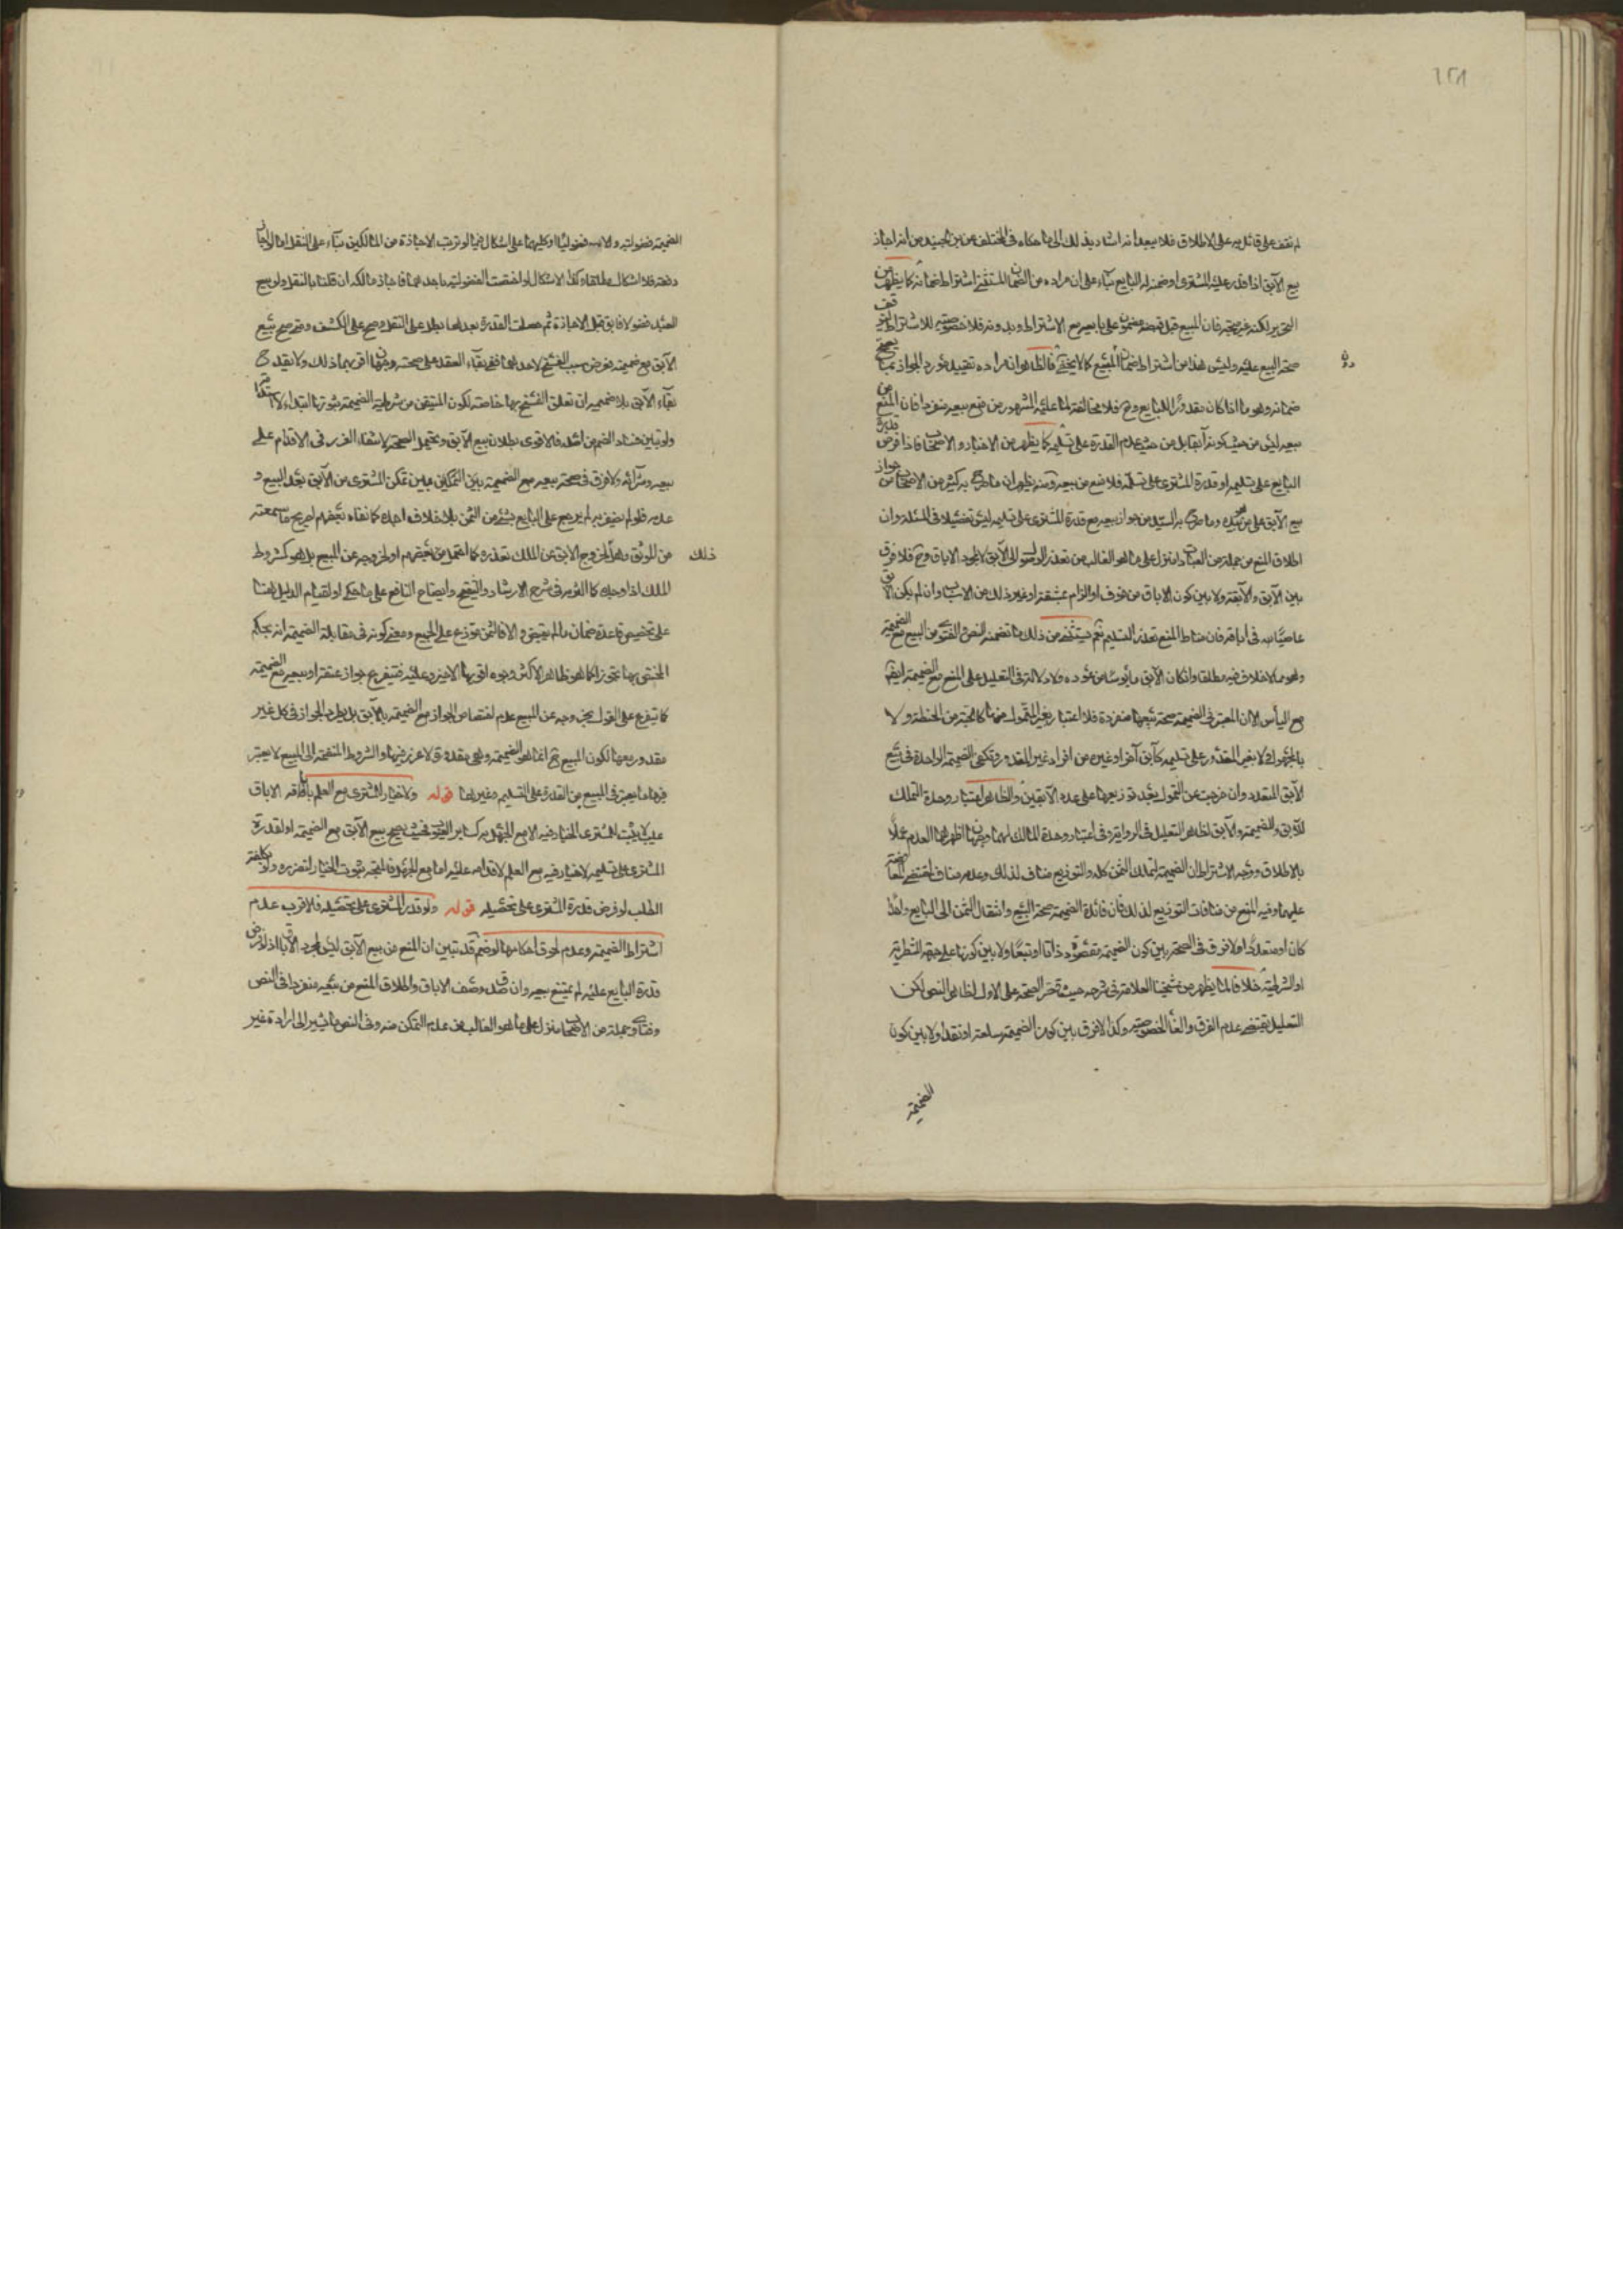 ١٤٨
لم نقف على قائل به على الاطلاق فلا يبعد انه اشار بذلك الى ما حكاه فى المختلف عن بن الجنيد من انه اجاز
بيع الآبق اذا قدر عليه المشترى او ضمنه له البايع بناء على ان مراده من الضمان اشتراط ضمانه كما يظهر من
التحرير لكنه غير متجه فان المبيع قبل قبضه مضمون على بايعه مع الاشتراط وبدونه فلا خصوصية للاشتراط
صحة البيع عليه وليس هذا من اشتراط ضمان المبيع كما لا يخفى فالظاهر انه اراده تقييد مورد الجواز
ضمانه وهو ما اذا كان مقدورًا للبايع وح فلا مخالفة لما عليه المشهور من منع بيعه منفردا فان المنع من
بيعه ليس من حيث كونه آبقا بل من حيث عدم القدرة على تسليمه كما يظهر من الاخبار والاصحاب فاذا فرض قدرة
البايع على تسليمه او قدرة المشترى على تسلمه فلا منع من بيعه ومنه يظهر ان ما صرح به كثير من الاصحاب من جواز
بيع الآبق على من هو بيده وما صرح به السيد من جواز بيعه مع قدرة المشترى على تسليمه ليس تفصيلا فى المسئلة وان
اطلاق المنع من جملة من العبارات منزل على ما هو الغالب من تعذر الوصول الى الآبق لا مجرد الاباق وح فلا فرق
بين الآبق والآبقة ولا بين كون الاباق من خوف او الزام بمشقة او غير ذلك من الاسباب وان لم يكن الآبق
عاصيًا به فى اباقه فان مناط المنع تعذر التسليم نعم يستثنى من ذلك ما تضمنه النص والفتوى من البيع مع الضميمة
وهو مما لا خلاف فيه مطلقا وان كان الآبق مأيوسًا من عوده ولا دلالة فى التعليل على المنع مع الضميمة ايضا
مع اليأس الا ان المعتبر فى الضميمة صحة بيعها منفردة فلا اعتبار بغير المتمول منها كالحبة من الحنطة ولا
بالمجهول ولا بغير المقدور على تسليمه كآبق آخر او غيره من افراد غير المقدور وتكفى الضميمة الواحدة فى بيع
الآبق المتعدد وان خرجت عن التمول بعد توزيعها على عدد الآبقين والظاهر اعتبار وحدة التملك
للآبق والضميمة والآبق لظاهر التعليل فى الرواية وفى اعتبار وحدة المالك لهما وجهان اظهرهما العدم عملًا
بالاطلاق ووجه الاشتراط ان الضميمة لتملك الثمن كله والتوزيع مناف لذلك وعدمه مناف لمقتضى المعاوضة
عليهما وفيه المنع من منافات التوزيع لذلك فان فائدة الضميمة صحة البيع وانتقال الثمن الى البايع واحدًا
كان او متعددًا ولا فرق فى الصحة بين كون الضميمة مقصودة ذاتا او تبعًا ولا بين كونها على جهة الشطرية
او الشرطية خلافا لما يظهر من شيخنا العلامة فى شرحه حيث قصر الصحة على الاول لظاهر النص لكن
التعليل يقتضى عدم الفرق والغاء الخصوصية وكذا لا فرق بين كون الضميمة سلعة او نقدا ولا بين كون
الضميمة
الضميمة فضولية والآبق فضوليًا او كليهما على اشكال فيما لو ترتبت الاجازة من المالكين بناء على النقل اما لو اجازا
دفعة فلا اشكال مطلقا وكذا الاشكال لو اختصت الفضولية باحدهما فاجاز مالكه ان قلنا بالنقل ولو بيع
العبد فضولا فابق قبل الاجازة ثم حصلت القدرة بعدها بطل على النقل وصح على الكشف ومتى صح بيع
الآبق مع ضميمة فعرض سبب الفسخ لاحدهما ففى بقاء العقد على صحته وجهان اقربهما ذلك ولا يقدح
بقاء الآبق بلا ضميمة ان تعلق الفسخ بها خاصة لكون المتيقن من شرطية الضميمة ثبوتها ابتداء لا استدامة
ولو تبين فساد الضم من اصله فالاقوى بطلان بيع الآبق ويحتمل الصحة لانتفاء الغرر فى الاقدام على
بيعه وشرائه ولا فرق فى صحة بيعه مع الضميمة بين التمكين وبين تمكن المشترى من الآبق بعد البيع و
عدمه فلو لم يظفر به لم يرجع على البايع بشئ من الثمن بلا خلاف اجده كما نفاه بعضهم لصريح ما سمعته
من الموثق وهو لخروج الآبق عن الملك بتعذره كما احتمل من بعضهم او لخروجه عن المبيع بل هو كشروط
ذلك
الملك اذا وجد كما الفخر فى شرح الارشاد والتنقيح وايضاح النافع على ما حكى او لقيام الدليل هنا
على تخصيص قاعدة ضمان ما لم يقبض والا فالثمن موزع على الجميع ومعنى كونه فى مقابلة الضميمة انه بحكم
المختص بها تجوزا كما هو ظاهر الاكثر وجوه اقربها الاخير وعليه فيتفرع جواز عتقه او بيعه مع الضميمة
كما يتفرع على القول بخروجه عن المبيع عدم اختصاص الجواز مع الضميمة بالآبق بل يطرد الجواز فى كل غير
مقدور بيعها لكون المبيع ح انما هو الضميمة وهى مقدورة لا غرر فيها والشروط المنضمة الى المبيع لا يعتبر
فيها ما يعتبر فى المبيع من القدرة على التسليم وغيرها قوله ولا خيار للمشترى مع العلم باباقه الاباق
عيب لا يثبت للمشترى الخيار فيه الا مع الجهل به كساير العيوب فحيث يصح بيع الآبق مع الضميمة او لقدرة
المشترى على تسليمه لا خيار فيه مع العلم لاقدامه عليه اما مع الجهل فالمتجه ثبوت الخيار لتضرره ولو بكلفة
الطلب لو فرض قدرة المشترى على تحصيله قوله ولو قدر المشترى على تحصيله فالاقرب عدم
اشتراط الضميمة وعدم لحوق احكامها لو ضم قد تبين ان المنع من بيع الآبق ليس لمجرد الاباق اذ لو فرض
قدرة البايع عليه لم يمتنع بيعه وان صدق وصف الاباق واطلاق المنع من بيعه منفردا فى النص
وفتاوى جملة من الاصحاب منزل على ما هو الغالب من عدم التمكن منه وفى النص ما يشير الى ارادة غير